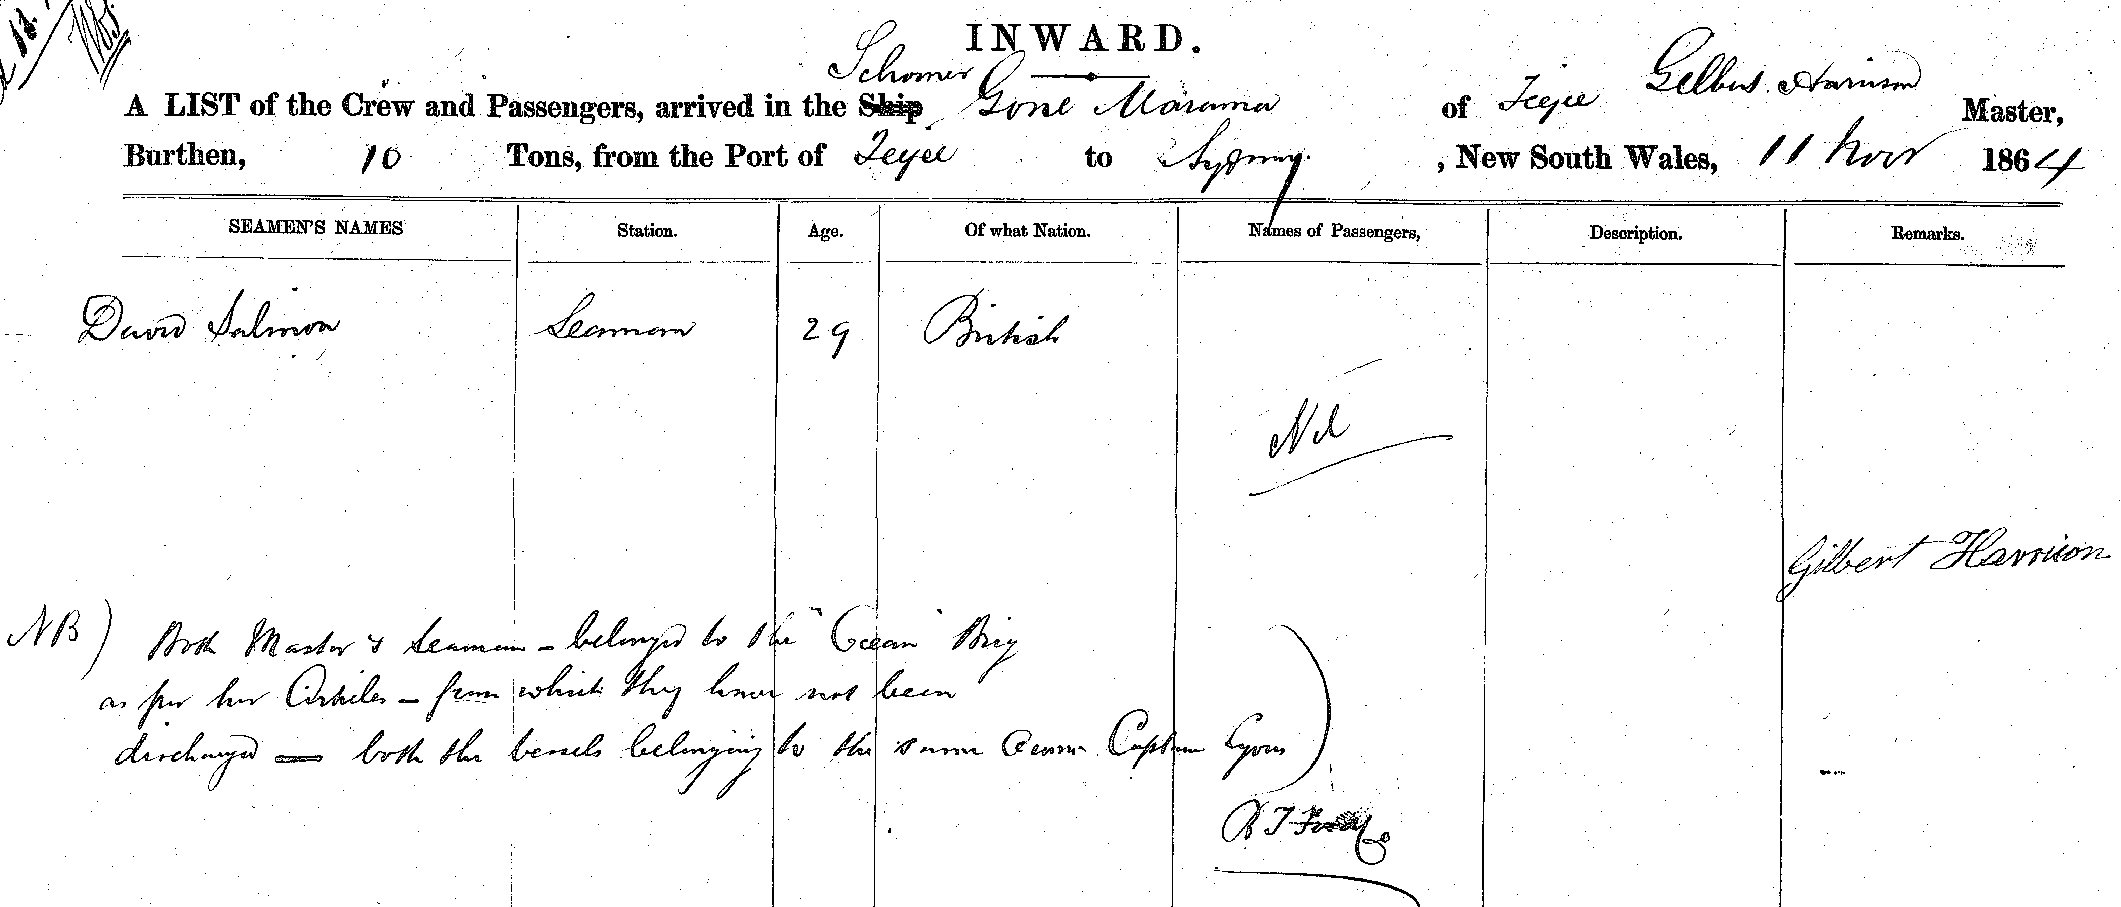 INWARD.
Schooner
A LIST of the Crew and Passengers, arrived in the Ship Gone Marama of Feejee Gilbert Harrison Master,
Burthen, 10 Tons, from the Port of Fejee to Sydney. , New South Wales, 11 Novr 1864
SEAMEN'S NAMES Station. Age. Of what Nation. Names of Passengers, Description. Remarks.
David Salmon Seaman 29 British
Nil
Gilbert Harrison
NB) Both Master & Seaman - belonged to the "Ocean" Brig
as per her Articles - from which they have not been
discharged — both the vessels belonging to the same Owner Captain Lyons